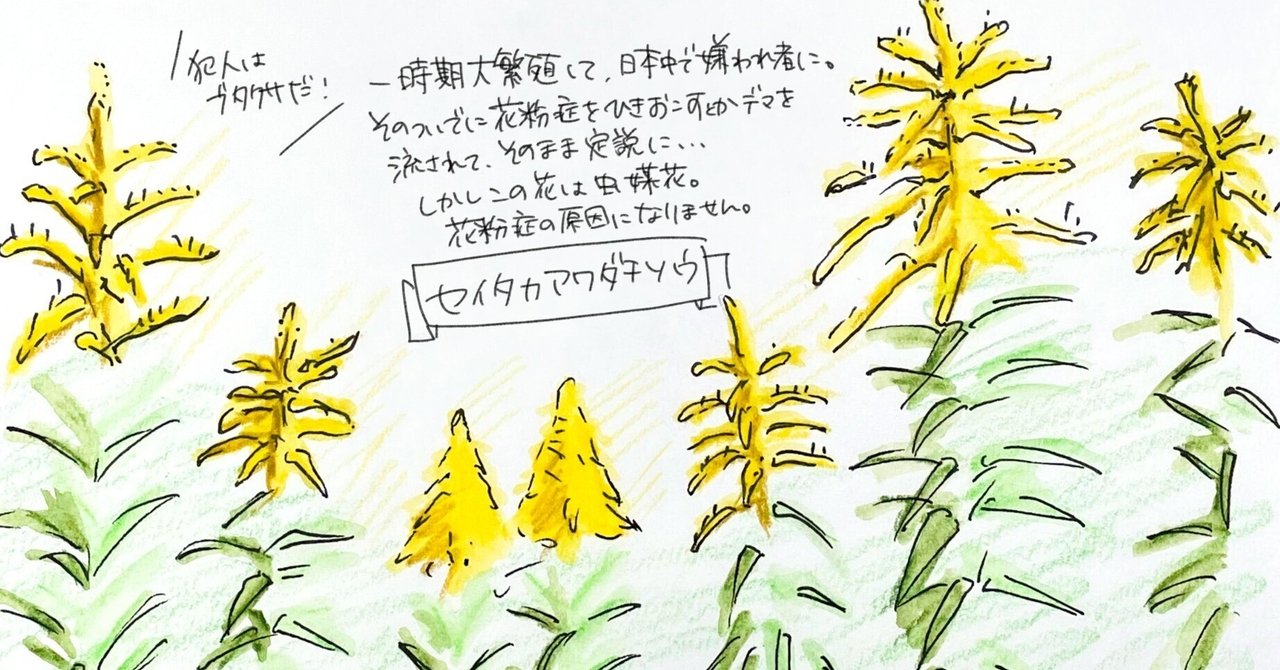 犯人は
ブタクサだ！
一時期大繁殖して、日本中で嫌われ者に。
そのついでに花粉症をひきおこすとかデマを
流されて、そのまま定説に…
しかしこの花は虫媒花。
花粉症の原因になりません。
セイタカアワダチソウ